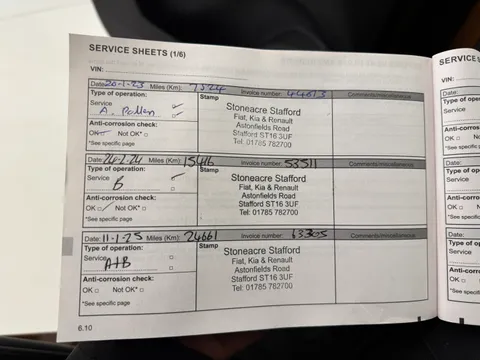 SERVICE SHEETS (1/6)
VIN:
Date: 20-1-23 Miles (Km): 7524 Invoice number: 44613 Comments/miscellaneous
Type of operation: Stamp
Service
A. Pollen
Anti-corrosion check:
OK Not OK*
*See specific page
Stoneacre Stafford
Fiat, Kia & Renault
Astonfields Road
Stafford ST16 3UF
Tel: 01785 782700
Date: 24-2-24 Miles (Km): 15416 Invoice number: 53511 Comments/miscellaneous
Type of operation: Stamp
Service
B
Anti-corrosion check:
OK Not OK*
*See specific page
Stoneacre Stafford
Fiat, Kia & Renault
Astonfields Road
Stafford ST16 3UF
Tel: 01785 782700
Date: 11-1-25 Miles (Km): 24661 Invoice number: 63305 Comments/miscellaneous
Type of operation: Stamp
Service
A+B
Anti-corrosion check:
OK Not OK*
*See specific page
Stoneacre Stafford
Fiat, Kia & Renault
Astonfields Road
Stafford ST16 3UF
Tel: 01785 782700
6.10
SERVICE
Date:
Type of
Service
Anti-cor
OK
*See spec
Date:
Type of
Service
Anti-cor
OK
*See spe
Date:
Type of
Service
Anti-co
OK
*See sp